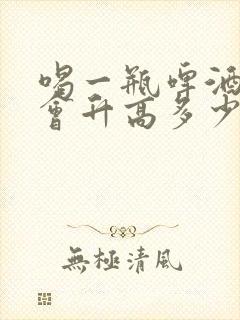 喝一瓶啤酒
會升高多少
無極清風